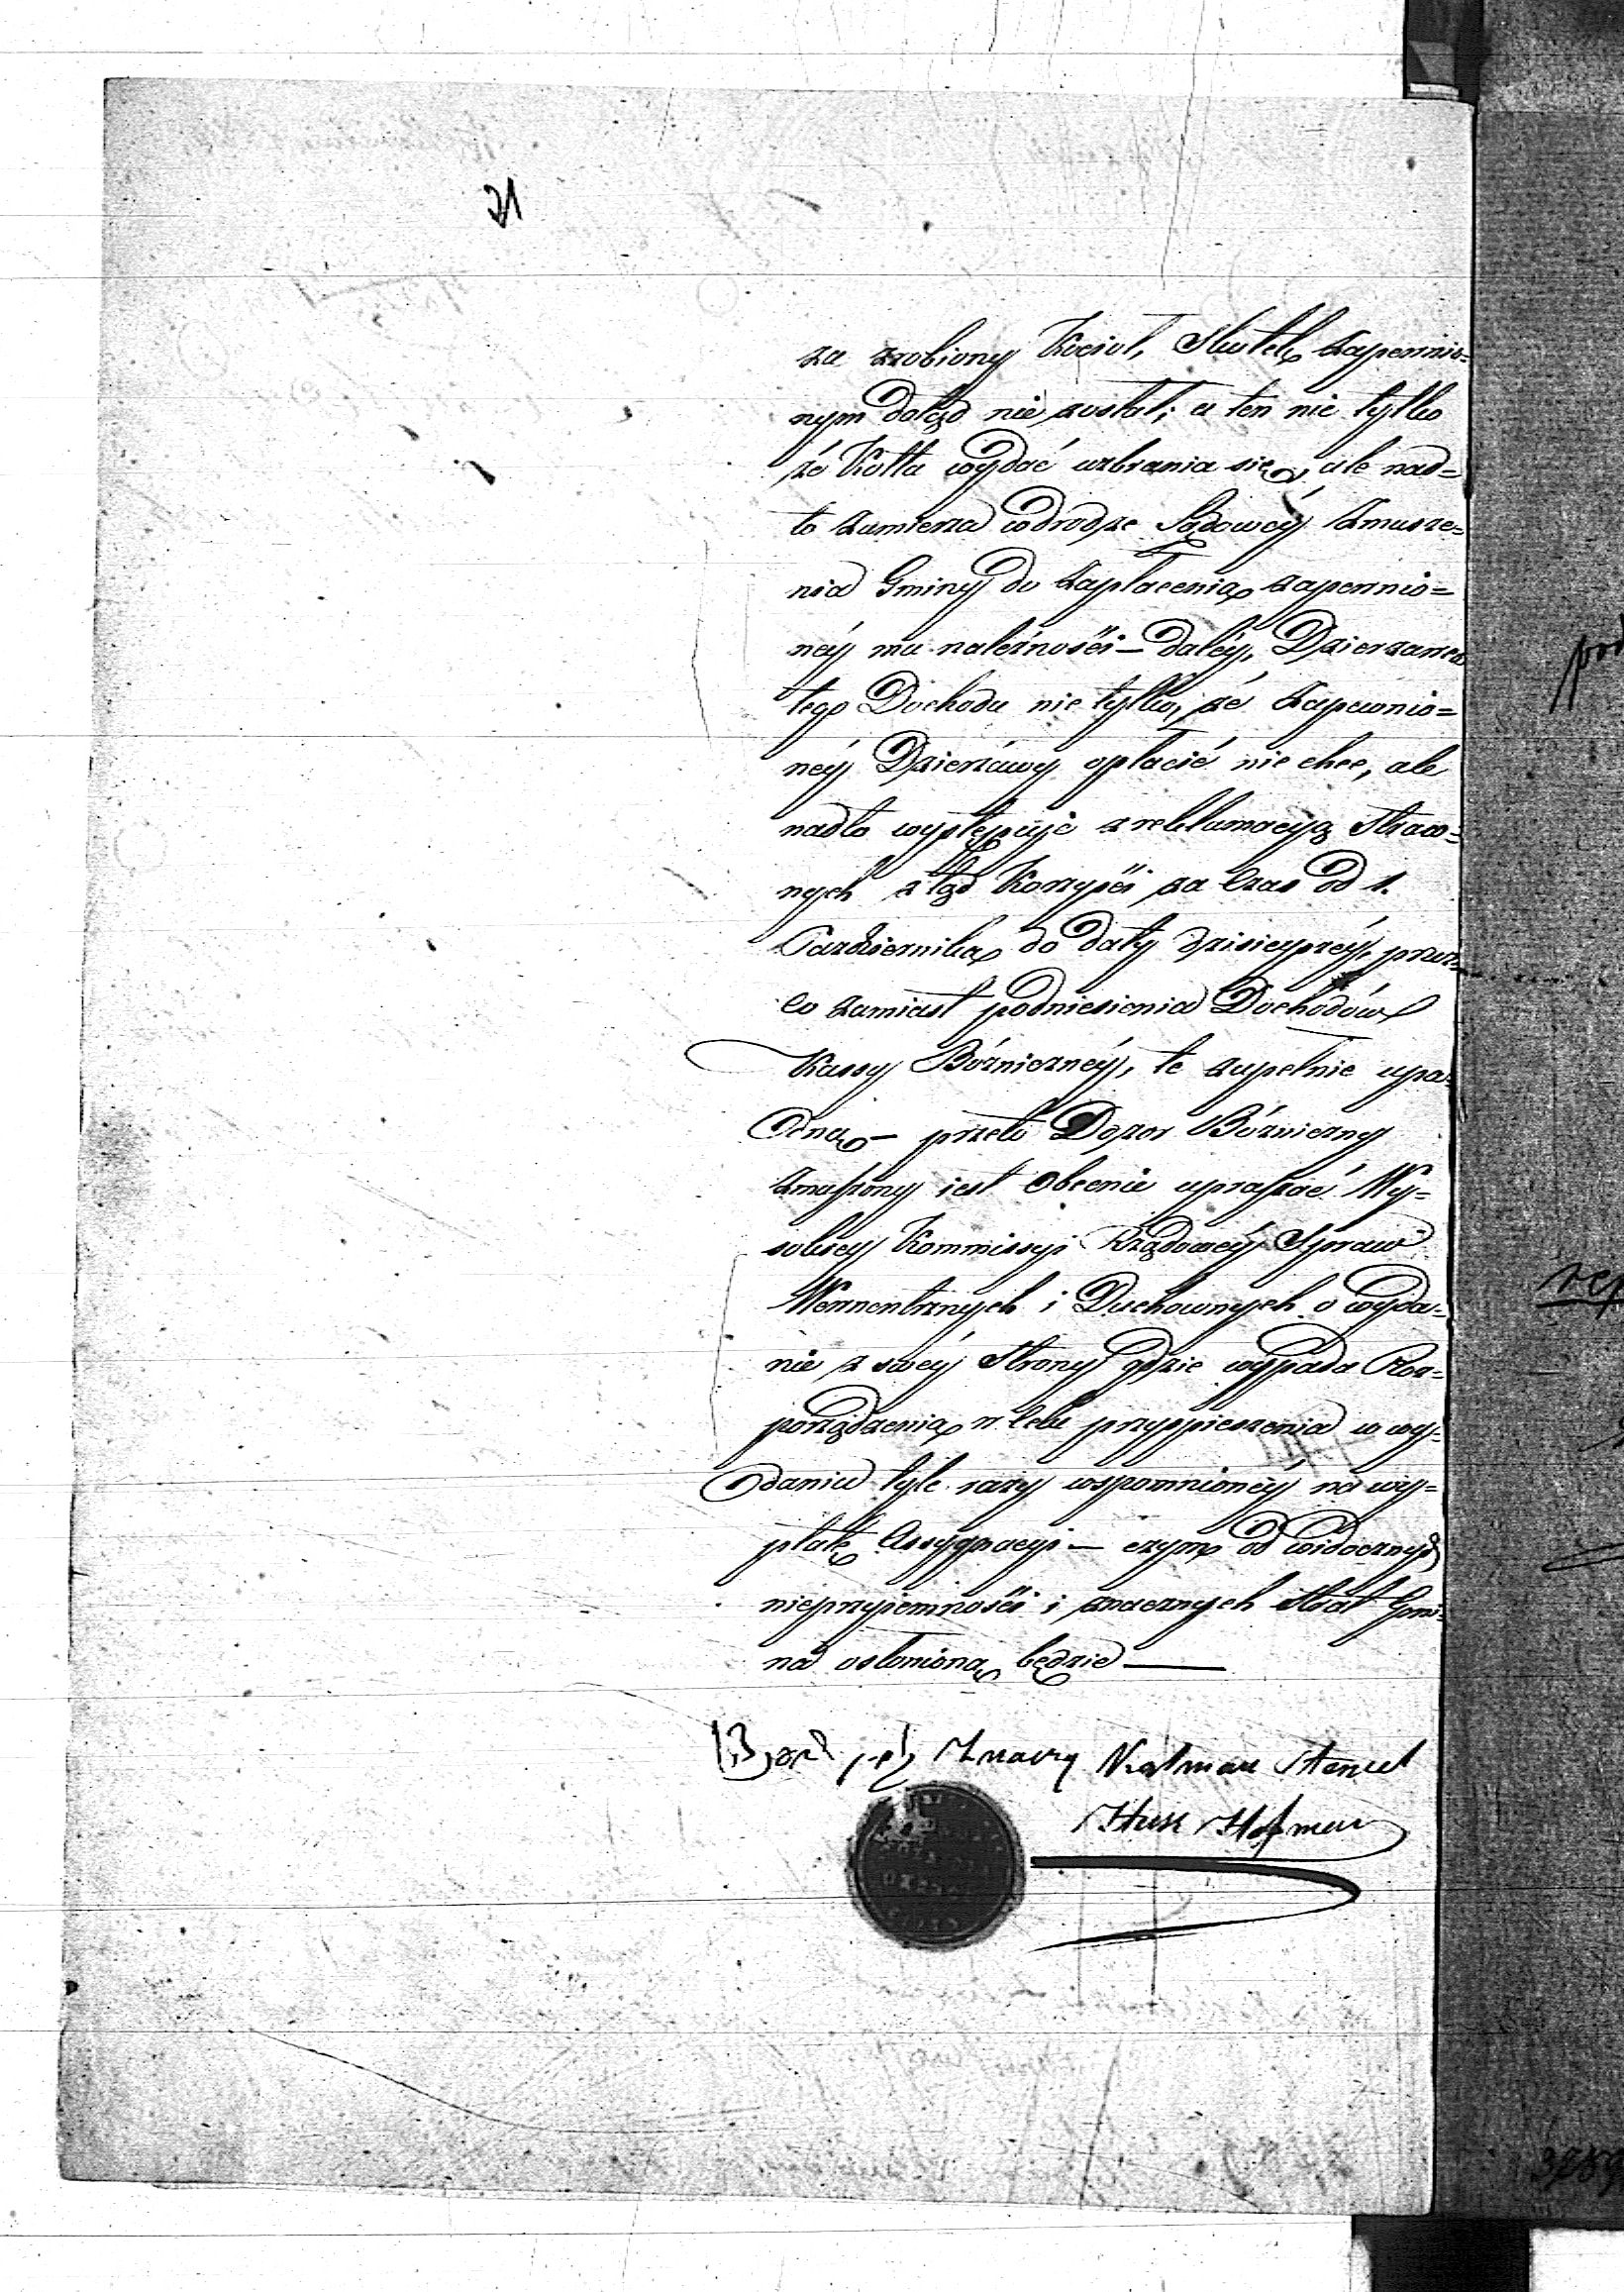 21
za zrobiony Kocioł, Skutek zapewnio=
nym dotąd nie został; a ten nie tylko
że Kotła wydać wzbrania się, ale nad=
to zamierza w drodze Sądowéy zmusze=
nia Gminy do zapłacenia, zapewnio=
néy mu należności – daléy, Dzierzawca
tego Dochodu nie tylko, że zapewnio=
néy Dzierżawy opłacić nie chce, ale
nadto występuje z reklamacyą straco=
nych z tąd Korzyści za Czas od 1.
Października do daty dzisieyszéy, przez
co zamiast podniesienia Dochodów
Kassy Bóżnicznéy, te zupełnie upa=
dną – przeto Dozor Bóżniczny
zmuszony jest obecnie upraszać Wy=
sokiey Kommissyi Rządowéy Spraw
Wewnentrznych i Duchownych o wyda=
nie z swéy Strony gdzie wypada Roz=
porządzenia, w celu przyspieszenia w wy=
daniu tyle razy wspomnionéy na wy=
płatę Assygnacyi – czym od widocznych
nieprzyjemności i znacznych Strat Gmi=
na osłonioną będzie —
Kalman Stencel
Hofman